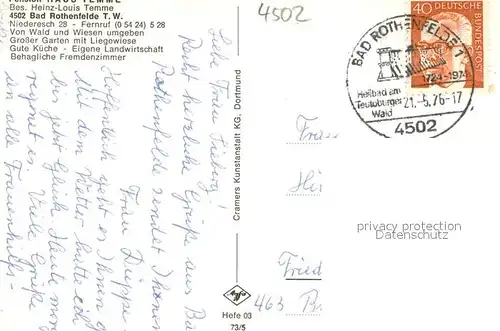 Pension HAUS TEMME
Bes. Heinz-Louis Temme
4502 Bad Rothenfelde T. W.
Niederesch 28 - Fernruf (0 54 24) 5 28
Von Wald und Wiesen umgeben
Großer Garten mit Liegewiese
Gute Küche - Eigene Landwirtschaft
Behagliche Fremdenzimmer
Liebe Frau
Recht herzliche Grüße aus Bad
Rothenfelde sendet Ihnen
Frau
Hoffentlich geht es Ihnen gut
Mit dem Wetter hatte ich
bis jetzt Glück. Heute morgen
regnet es. Viele Grüße
an alle Frauenhilfs-
Cramers Kunstanstalt KG, Dortmund
Agfa
Hefe 03
73/5
4502
BAD ROTHENFELDE
1724-1974
Heilbad am
Teutoburger
Wald
21.-5.76-17
4502
40
DEUTSCHE
BUNDESPOST
Frau
Fried
463 B
privacy protection
Datenschutz